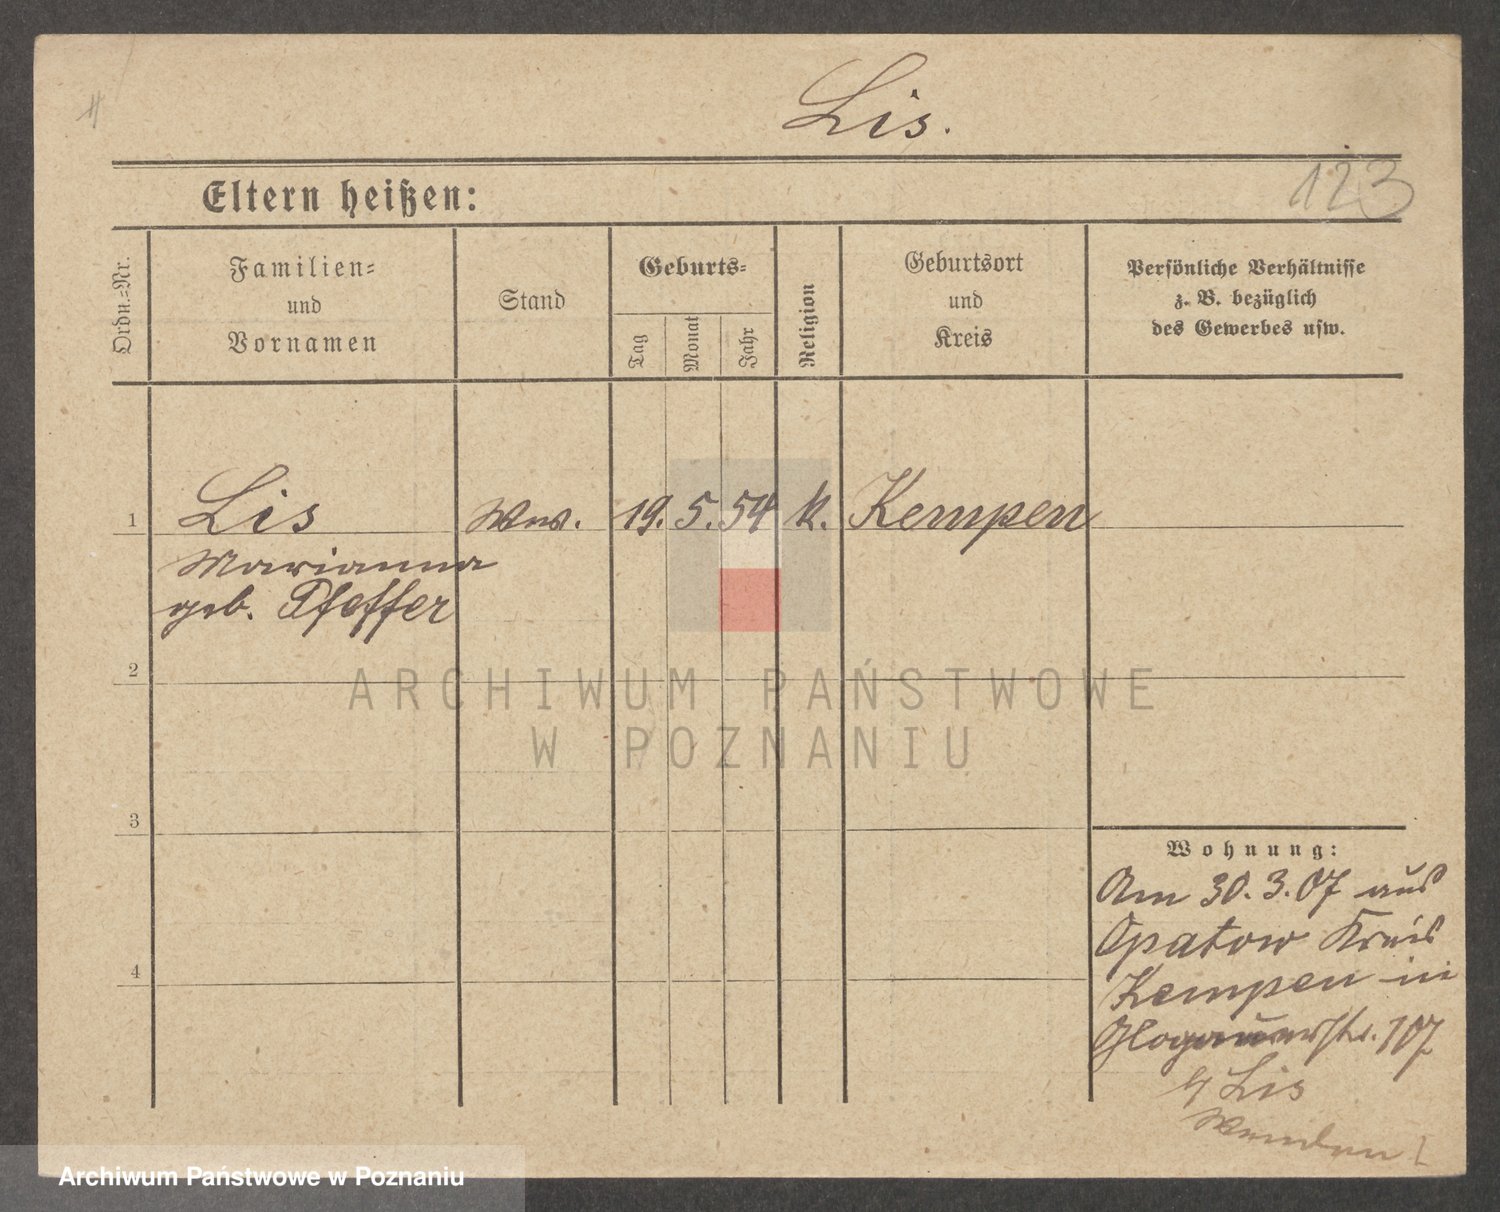 Lis.
123
Eltern heißen:
Ordn.=Nr.
Familien=
und
Vornamen
Stand
Geburts=
Tag
Monat
Jahr
Religion
Geburtsort
und
Kreis
Persönliche Verhältnisse
z. B. bezüglich
des Gewerbes usw.
1 Lis Ww. 19. 5. 54 k. Kempen
Marianna
geb. Pfeffer
2
ARCHIWUM PAŃSTWOWE
W POZNANIU
3
Wohnung:
Am 30. 3. 07 aus
Opatow Kreis
4
Kempen in
Glogauerstr. 107
b/ Lis
Wenden!
Archiwum Państwowe w Poznaniu